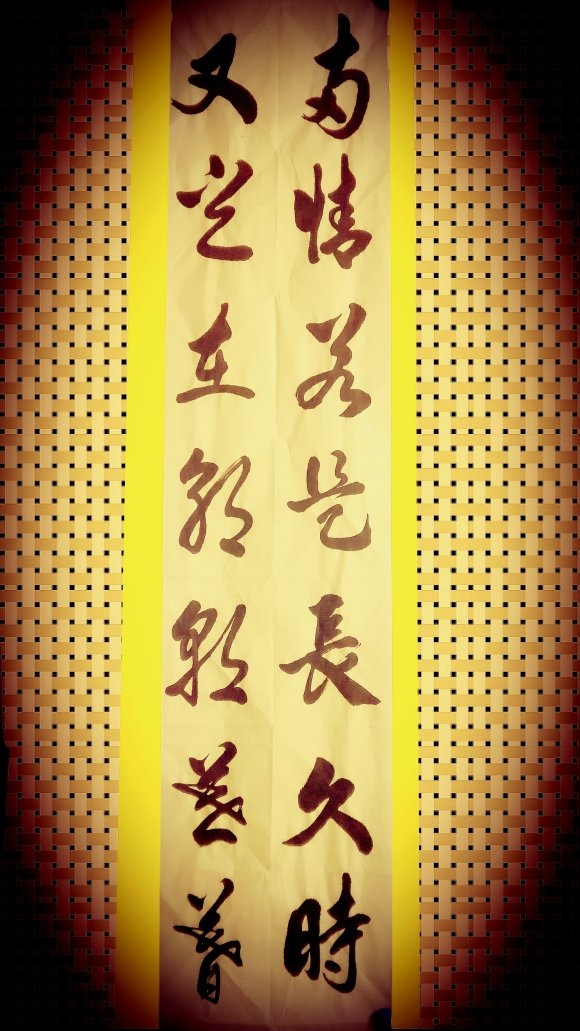 兩情若是長久時
又豈在朝朝暮暮